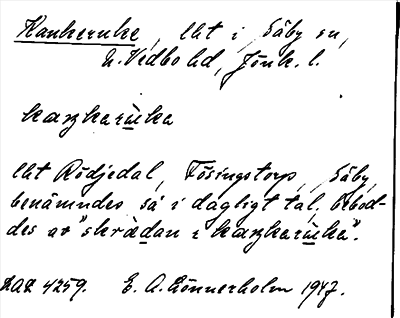 Kankeruke, lht i Säby sn,
N. Vedbo hd, Jönk. l.
kaŋkarùka
lht Rödjedal, Fösingstorp, Säby,
benämndes så i dagligt tal, bebod-
des av "skrädan i kaŋkarùka".
4259. E. A. Lönnerholm 1947.